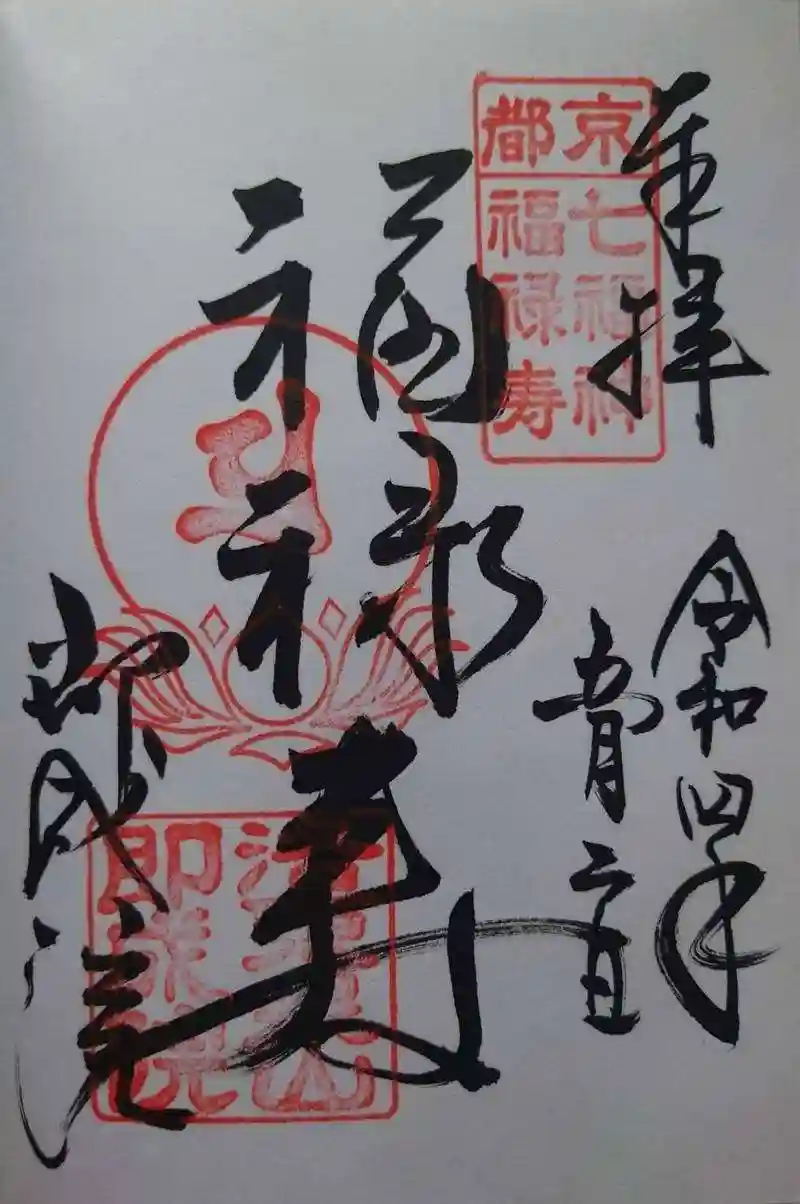 奉拝
令和四年
五月二日
京都
七福神
福禄寿
福禄寿
即成院
即成院